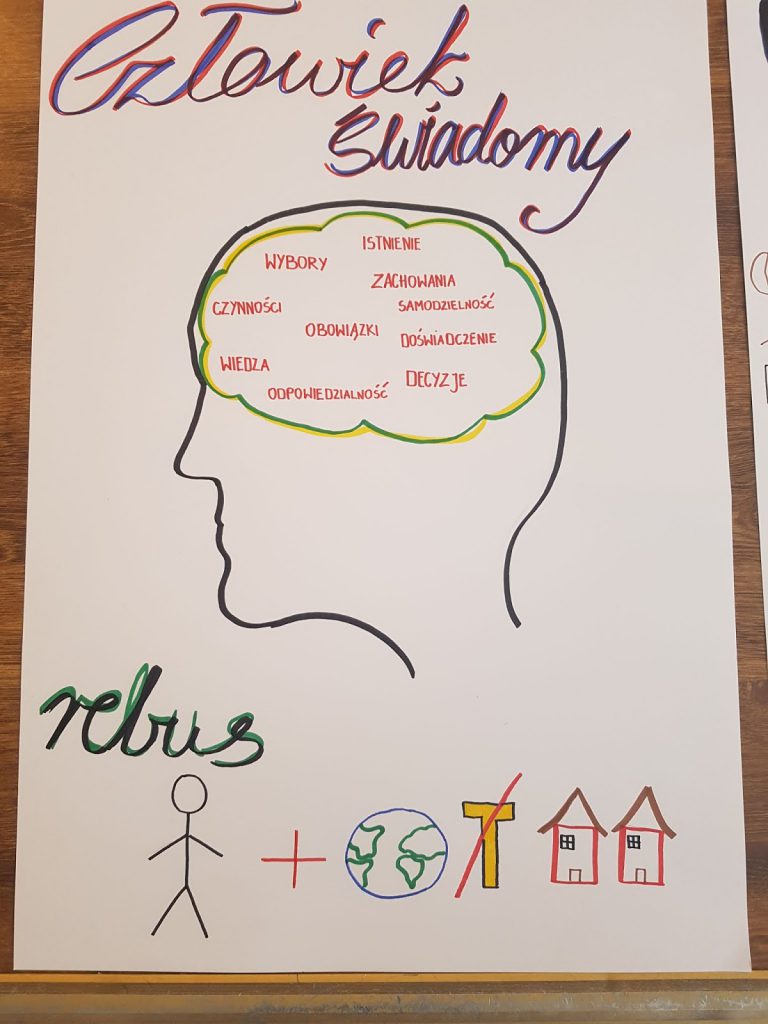 Człowiek
świadomy
ISTNIENIE
WYBORY
ZACHOWANIA
CZYNNOŚCI
SAMODZIELNOŚĆ
OBOWIĄZKI
DOŚWIADCZENIE
WIEDZA
DECYZJE
ODPOWIEDZIALNOŚĆ
rebus
+ T